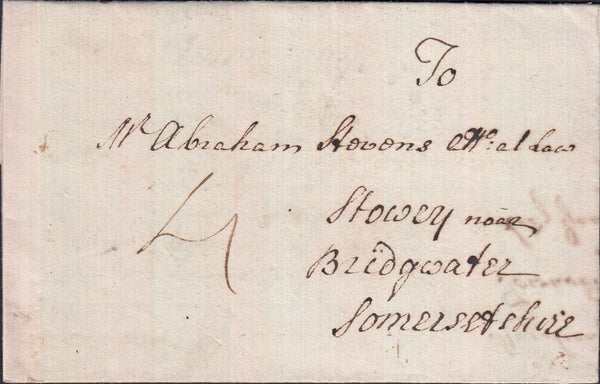 To
Mr Abraham Stevens Atto: at Law
4
Stowey near
Bridgwater
Somersetshire